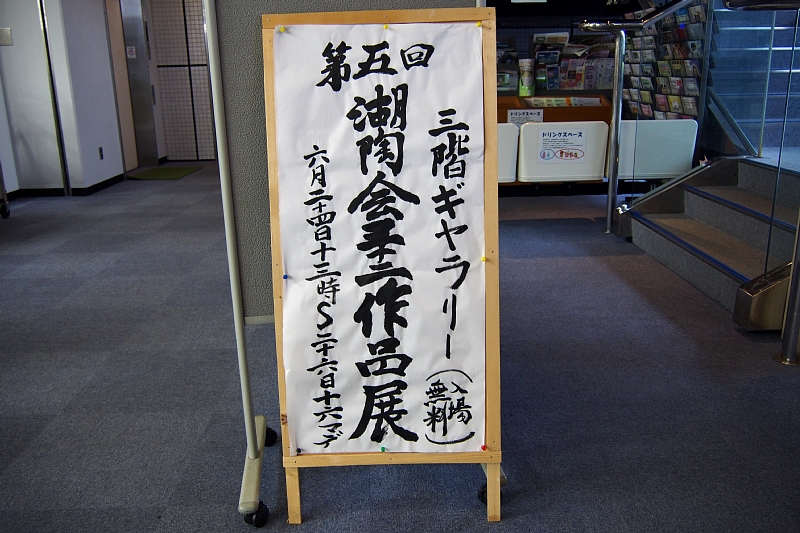 第五回
三階ギャラリー
(入場
無料)
潮陶会
作品展
六月二十四日十三時〜二十六日十六マデ
ドリンクスペース
ドリンクスペース